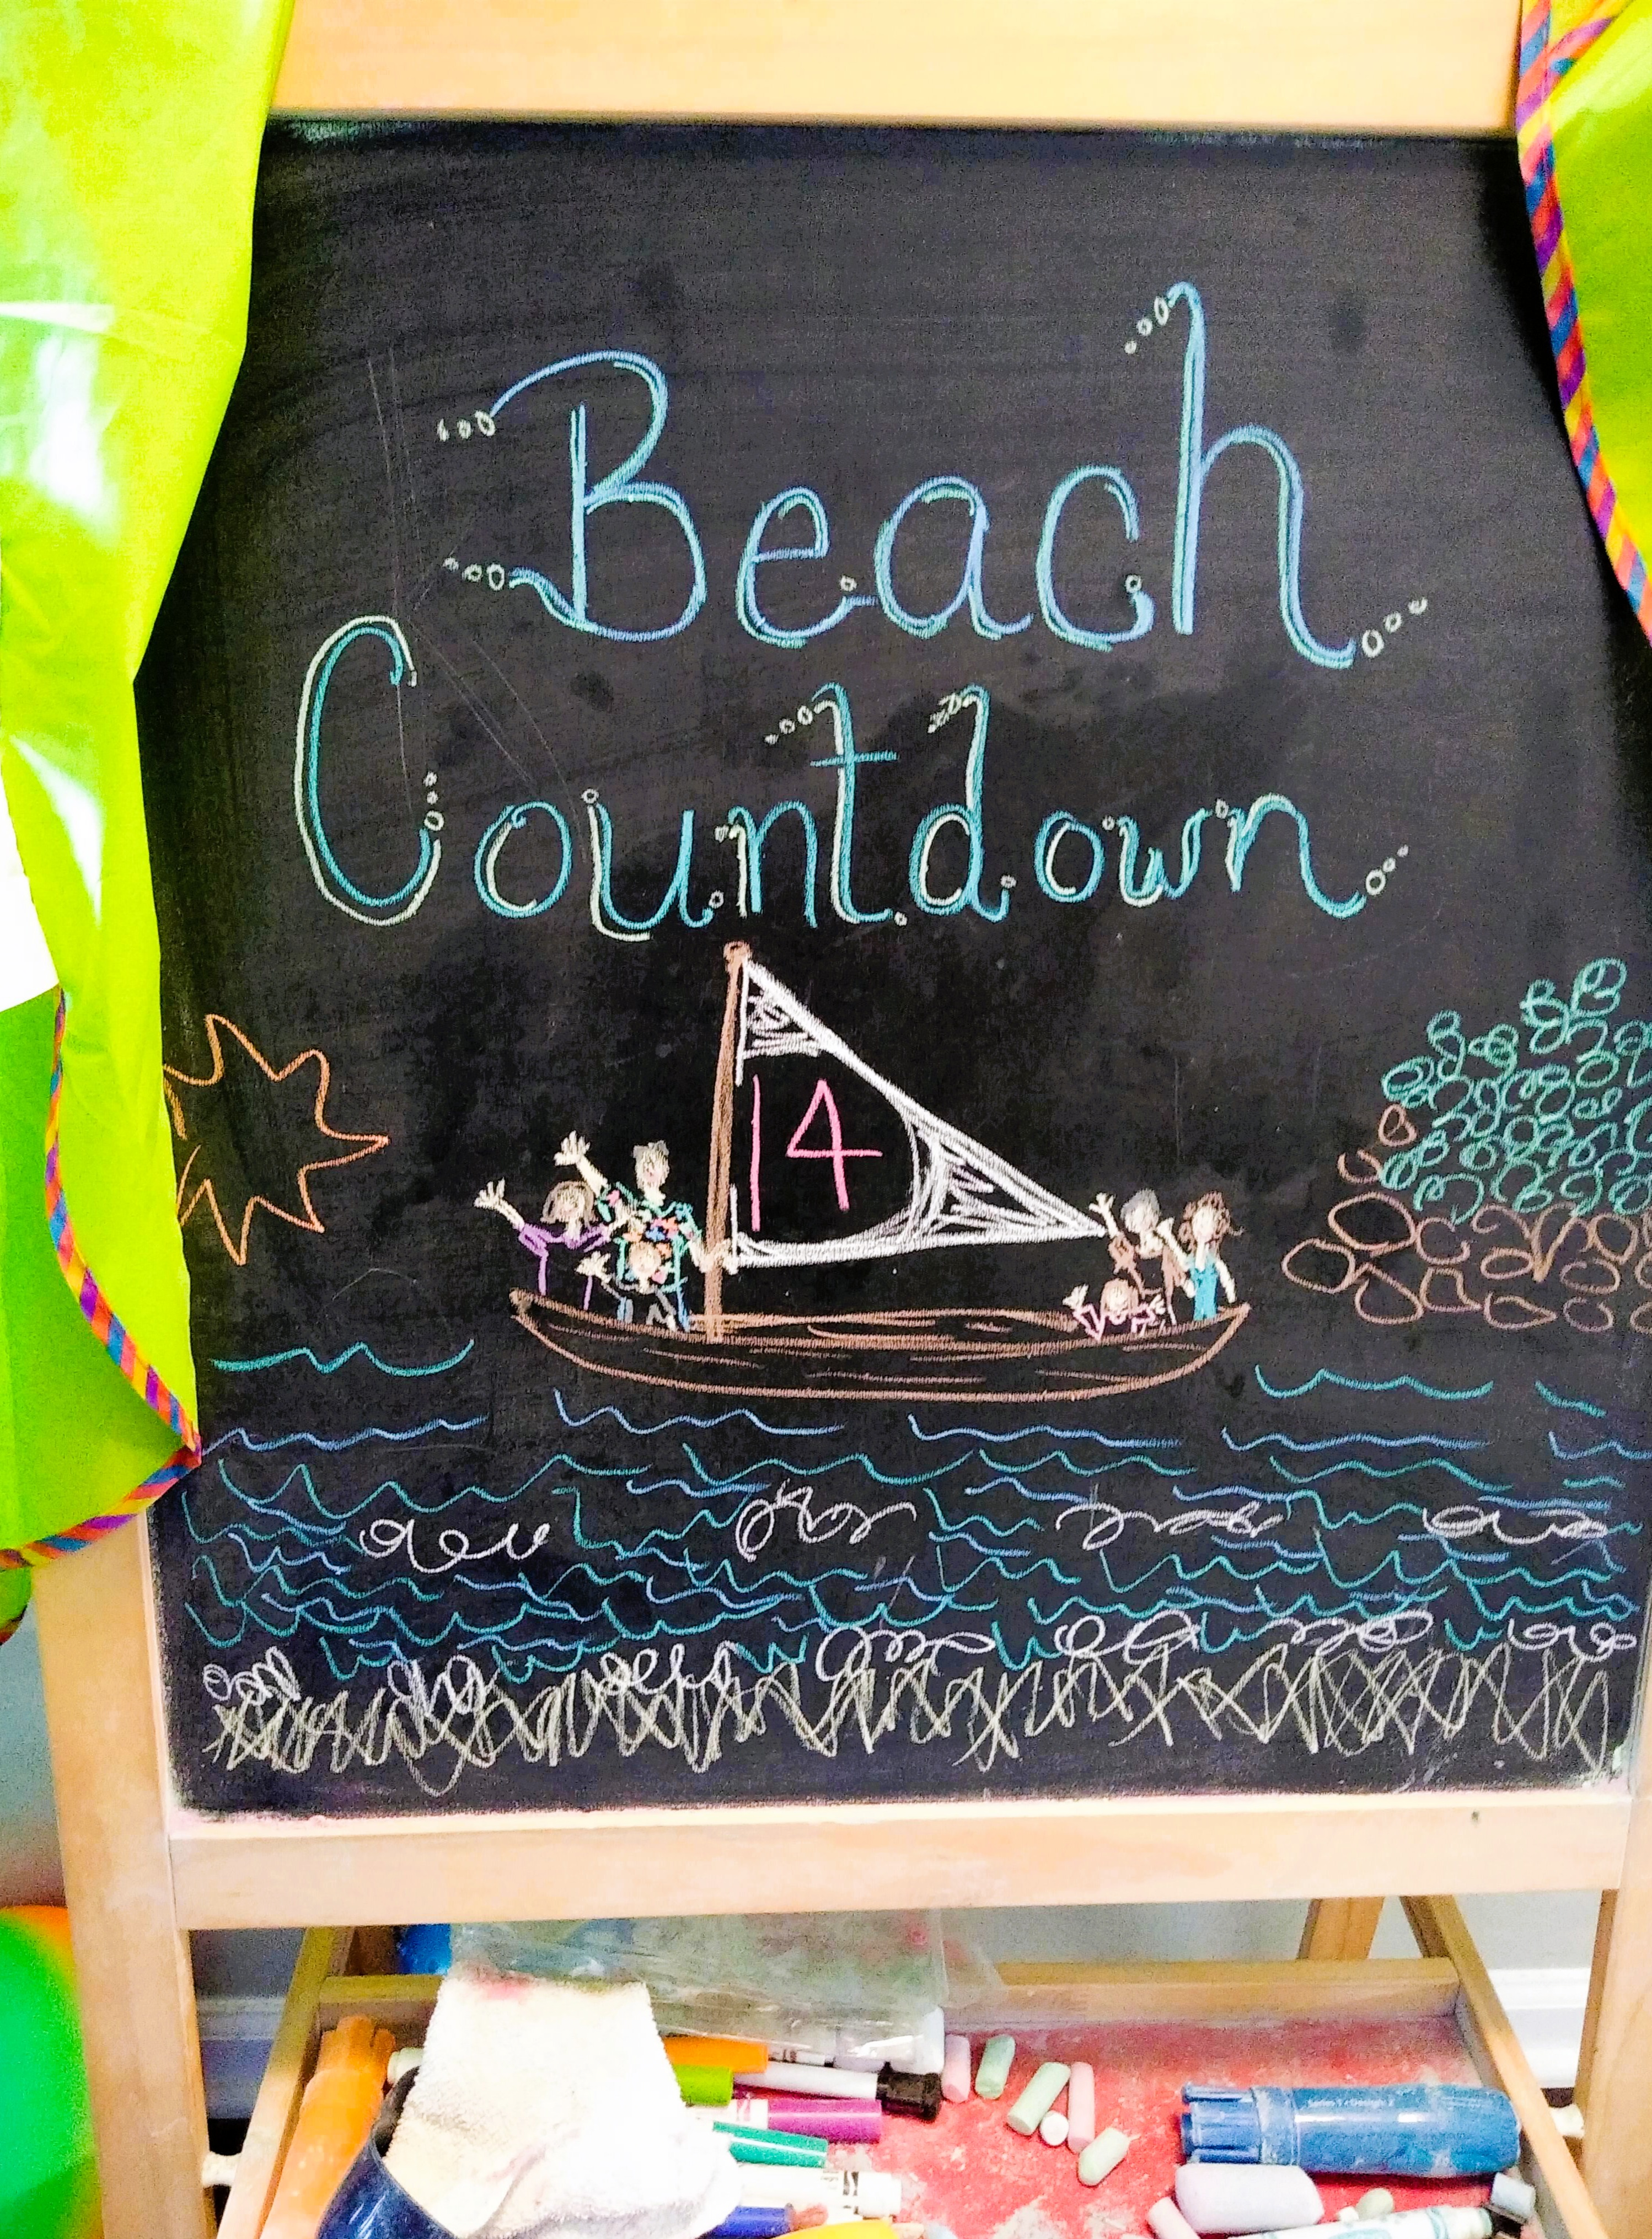 Beach
Countdown
14